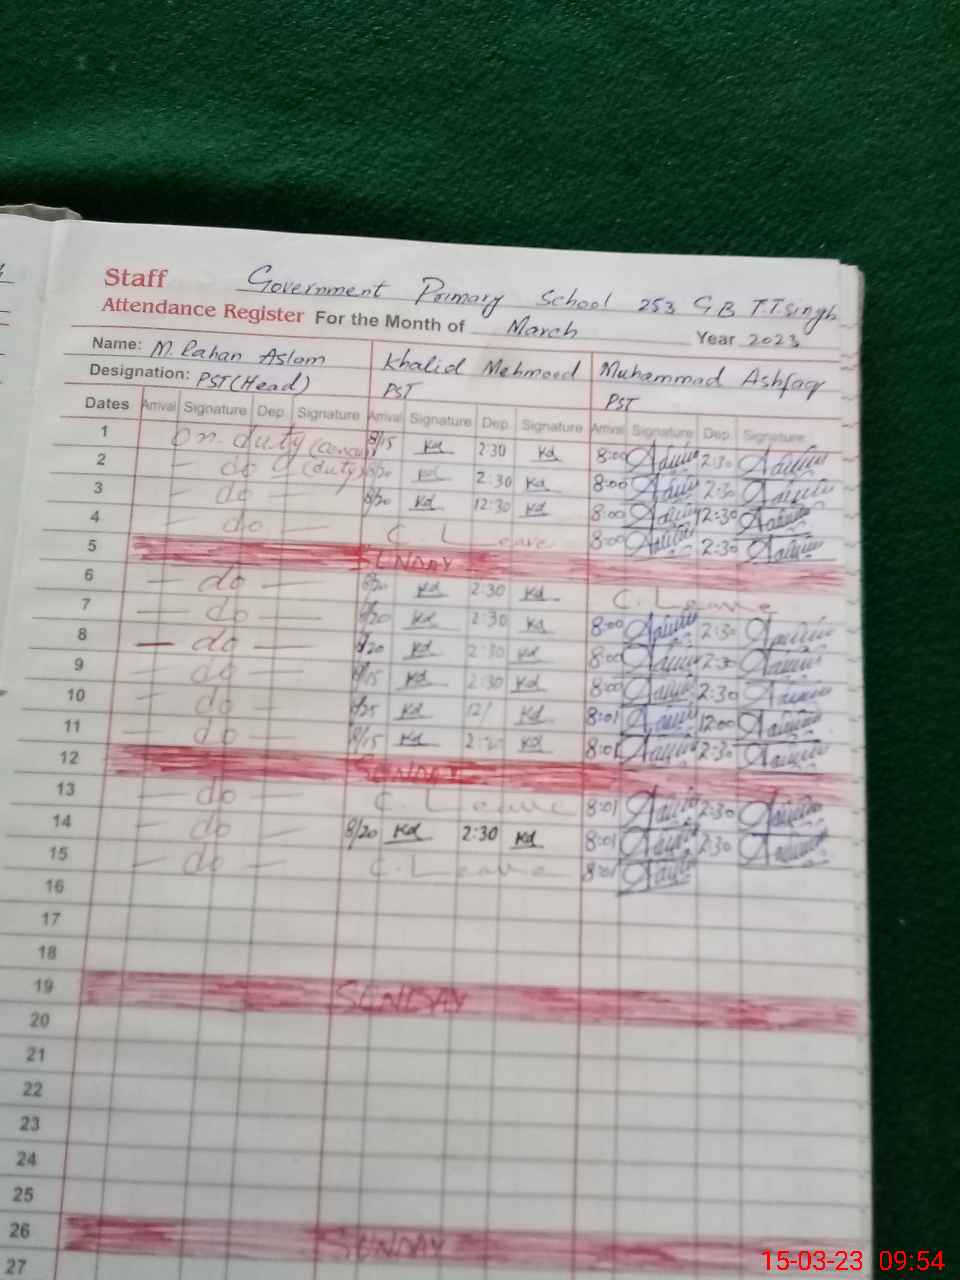 Staff Government Primary School 253 GB T.T.singh
Attendance Register For the Month of March Year 2023
Name: M. Rahan Aslam Khalid Mehmood Muhammad Ashfaq
Designation: PST (Head) PST PST
Dates Arrival Signature Dep. Signature Arrival Signature Dep. Signature Arrival Signature Dep. Signature
1 On duty 8/15 Kd 2:30 Kd 8:00 2:30
2 - do (duty) Kd 2:30 Kd 8:00 2:30
3 - do - 8/20 Kd 12:30 Kd 8:00 12:30
4 - do - C. Leave 8:00 2:30
5 SUNDAY
6 - do - 8/20 Kd 2:30 Kd C. Leave
7 - do - Kd 2:30 Kd 8:00 2:30
8 - do - Kd 2:30 Kd 8:00 2:30
9 - do - 8/15 Kd 2:30 Kd 8:00 2:30
10 - do - Kd 12/ Kd 8:01 12:00
11 - do - 8/15 Kd Kd 8:01 2:30
12 SUNDAY
13 - do - C. Leave 8:01 2:30
14 - do - 8/20 Kd 2:30 Kd 8:01 2:30
15 - do - C. Leave 8:01
16
17
18
19 SUNDAY
20
21
22
23
24
25
26 SUNDAY
27
15-03-23 09:54